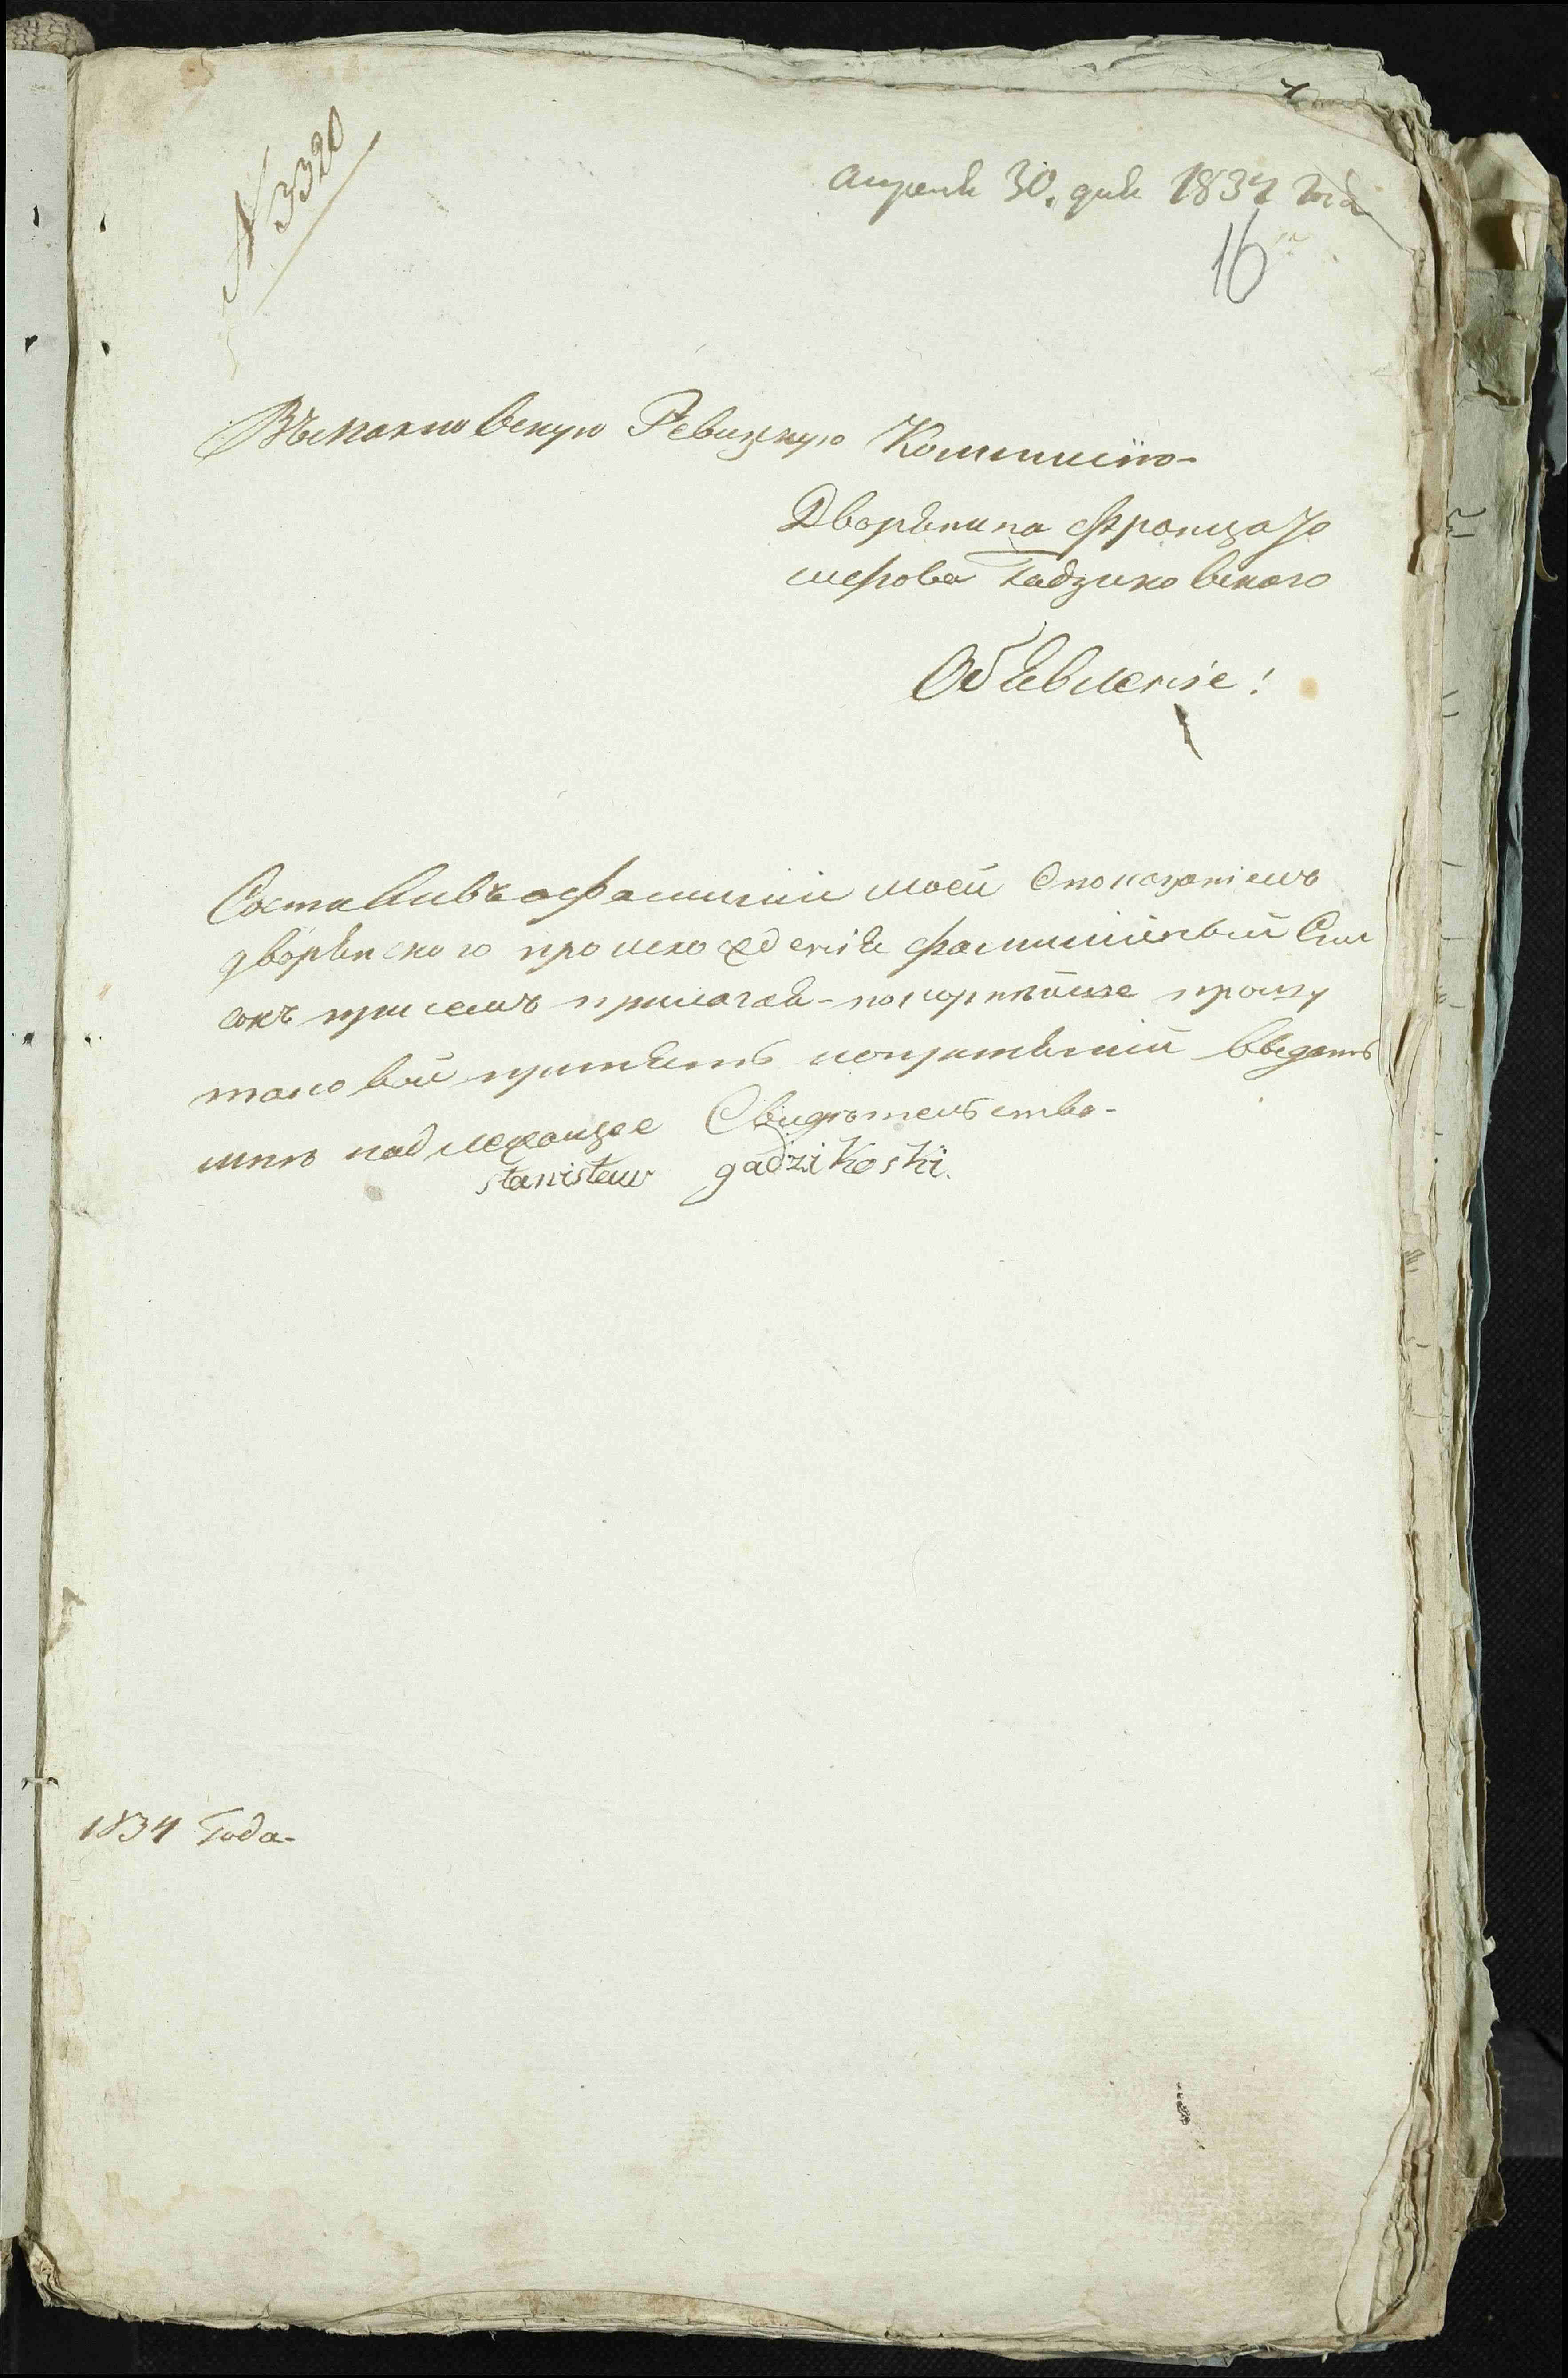 N 3320
апреля 30. дня 1834 года
16
Въ Махновскую Ревизкую Коммисию-
Дворянина Франца Iо
сифова Гадзиковскаго
Объявленiе!
Составивъ о фамилiи моей споказанiемъ
дворянскаго происхожденiя фамилiйный Спи
сокъ присемъ прилагая-покорнейше прошу
таковой принять вьдать
мнъ надлежащее Свидътельство-
stanisław gadzikoski.
1834 Года-